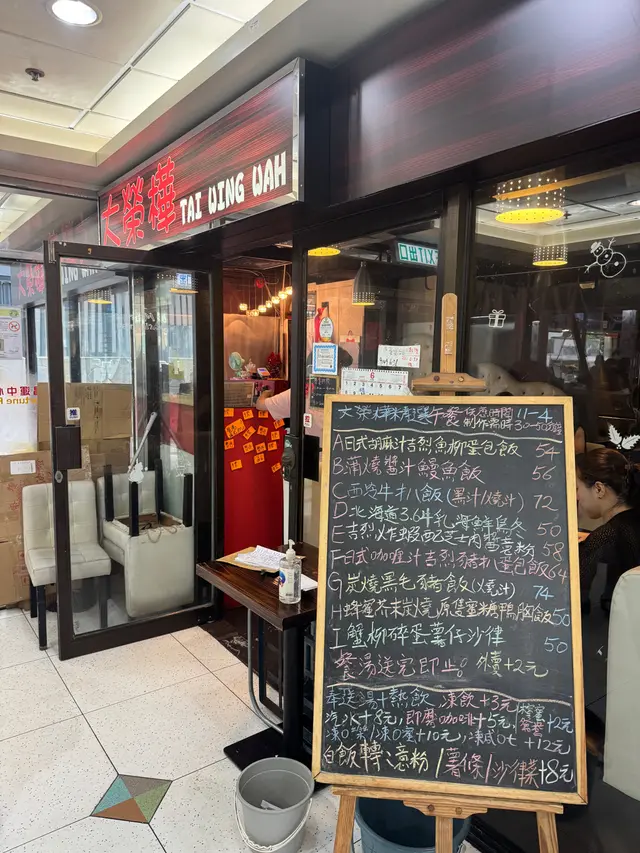 大榮華 TAI WING WAH
EXIT 出口
6
大榮華精選午餐 供應時間 11-4
制作需時30-50分鐘
A 日式胡麻汁吉烈魚柳蛋包飯 54
B 蒲燒醬汁鰻魚飯 56
C 西冷牛扒飯 (黑汁/燒汁) 72
D 北海道3.6牛乳海鮮烏冬 50
E 吉烈炸蝦配芝士肉醬意粉 58
F 日式咖喱汁吉烈豬扒蛋包飯 64
G 炭燒黑毛豬飯 (燒汁) 74
H 蜂蜜芥末炭燒原隻蜜糖鴨胸飯 50
I 蟹柳碎蛋薯仔沙律 50
餐湯送完即止。外賣+2元
奉送湯+熱飲，凍飲+3元，
汽水+8元，即磨咖啡+5元，+2元
+10元，+12元
白飯轉意粉/薯條/沙律菜+8元